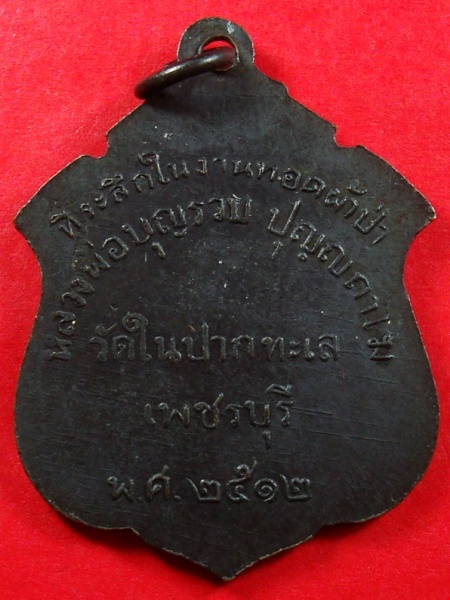 ที่ระลึกในงานทอดผ้าป่า
หลวงพ่อบุญรวม ปุญญกาโม
วัดในปากทะเล
เพชรบุรี
พ.ศ.๒๕๑๒